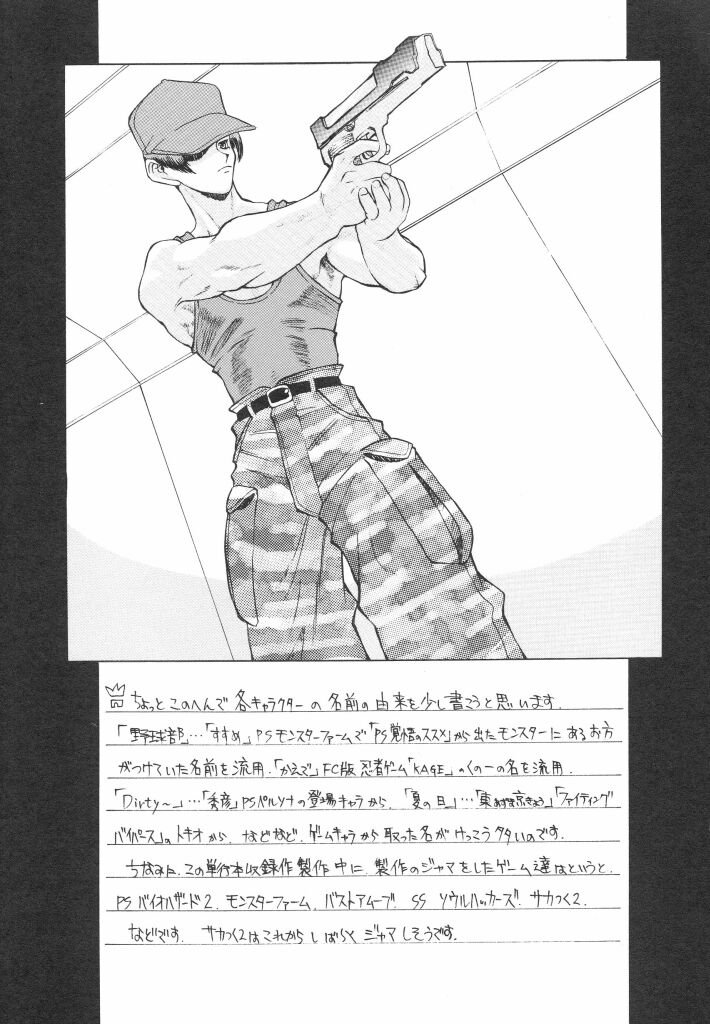 ちょっとこのへんで各キャラクターの名前の由来を少し書こうと思います.
「野球部」…「すすめ」PSモンスターファームで「PS覚悟のススメ」から出たモンスターにあるお方
がつけていた名前を流用.「かえで」FC版 忍者ゲーム「KAGE」のくの一の名を流用.
「Dirty〜」…「秀彦」PSペルソナの登場キャラから.「夏の日」…「東あずま京きょう」「ファイティング
バイパーズ」のトキオから、などなど、ゲームキャラから取った名がけっこう多いのです.
ちなみに、この単行本収録作製作中に、製作のジャマをしたゲーム達はというと、
PSバイオハザード2、モンスターファーム、バストアムーブ SS ソウルハッカーズ、サカつく2、
などです. サカつく2はこれからしばらくジャマしそうです.